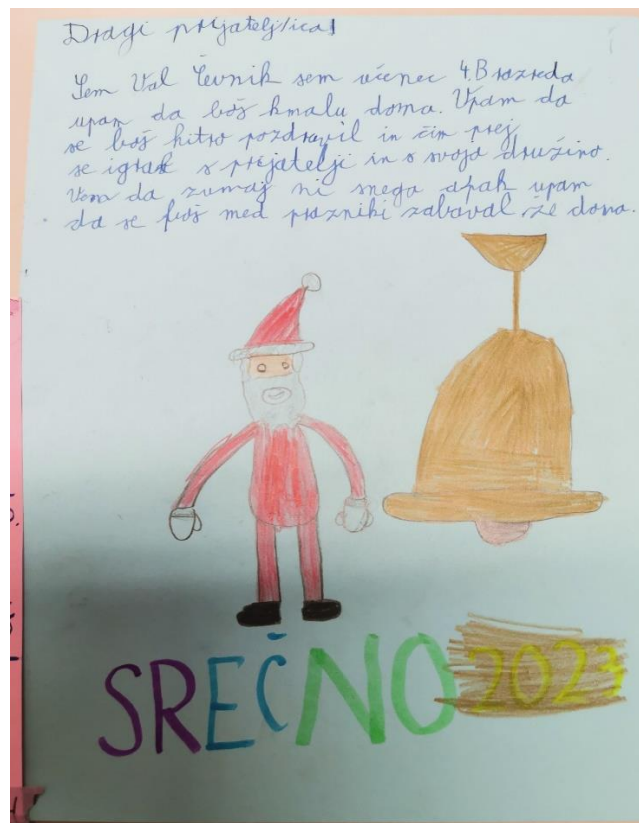 Dragi prijatelj/ica!
Sem Val Čevnik sem učenec 4.B razreda
upam da boš kmalu doma. Upam da
se boš hitro pozdravil in čim prej
se igral s prijatelji in s svojo družino.
Vem da zunaj ni snega apak upam
da se boš med prazniki zabaval že doma.
SREČNO 2023